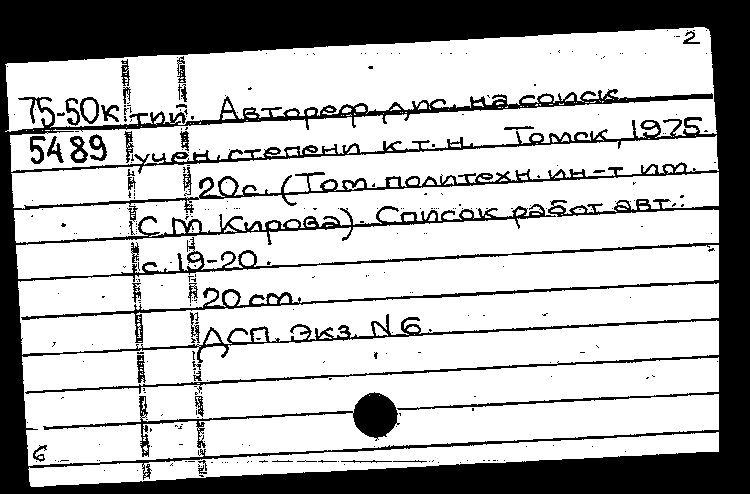 2
75-50к тий. Автореф. дис. на соиск.
5489 учен. степени к.т.н. Томск, 1975.
20с. (Том. политехн. ин-т им.
С.М. Кирова). Список работ авт.:
с. 19-20.
20 cm.
ДСП. Экз. N 6.
6